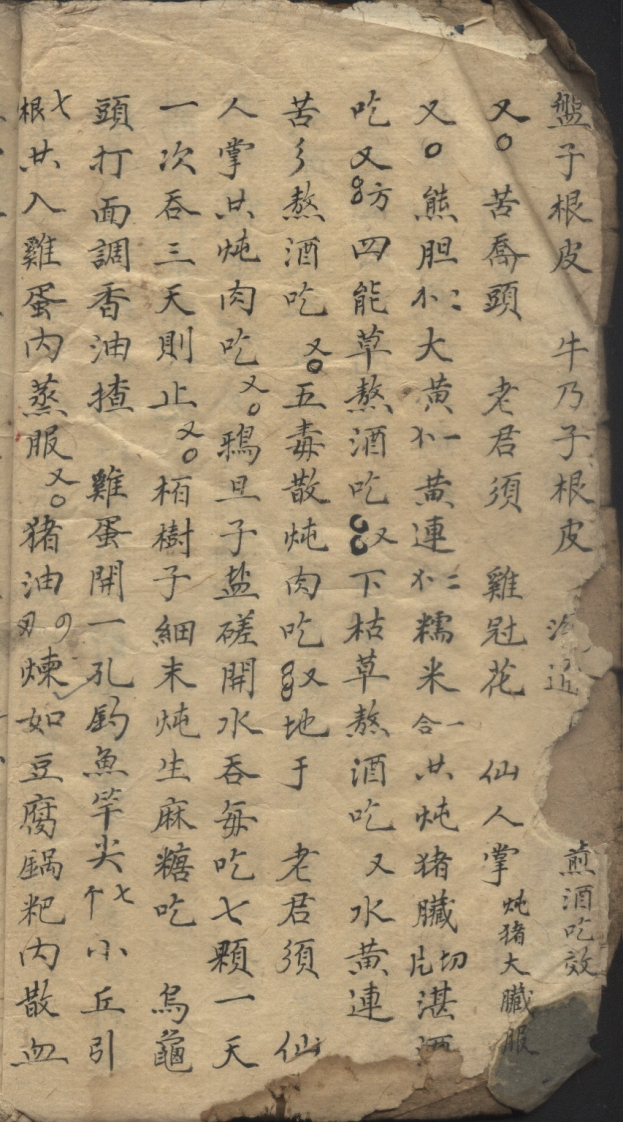 盤子根皮 牛乃子根皮 煎酒吃效
又 苦喬頭 老君須 雞冠花 仙人掌 炖猪大臟服
又 熊胆 大黄 黄連 糯米一合 共炖猪臟切片湛酒
吃 又方 四能草熬酒吃 又 下枯草熬酒吃 又 水黄連
苦 熬酒吃 又 五毒散炖肉吃 又 地于 老君須 仙
人掌共炖肉吃 又 鴉旦子盐磋開水吞每吃七顆一天
一次吞三天則止 又 栢樹子細末炖生麻糖吃 烏龜
頭打面調香油揸 雞蛋開一孔 魚竿尖七个小丘引
七根共入雞蛋内蒸服 又 猪油 煉如豆腐鍋粑内散血